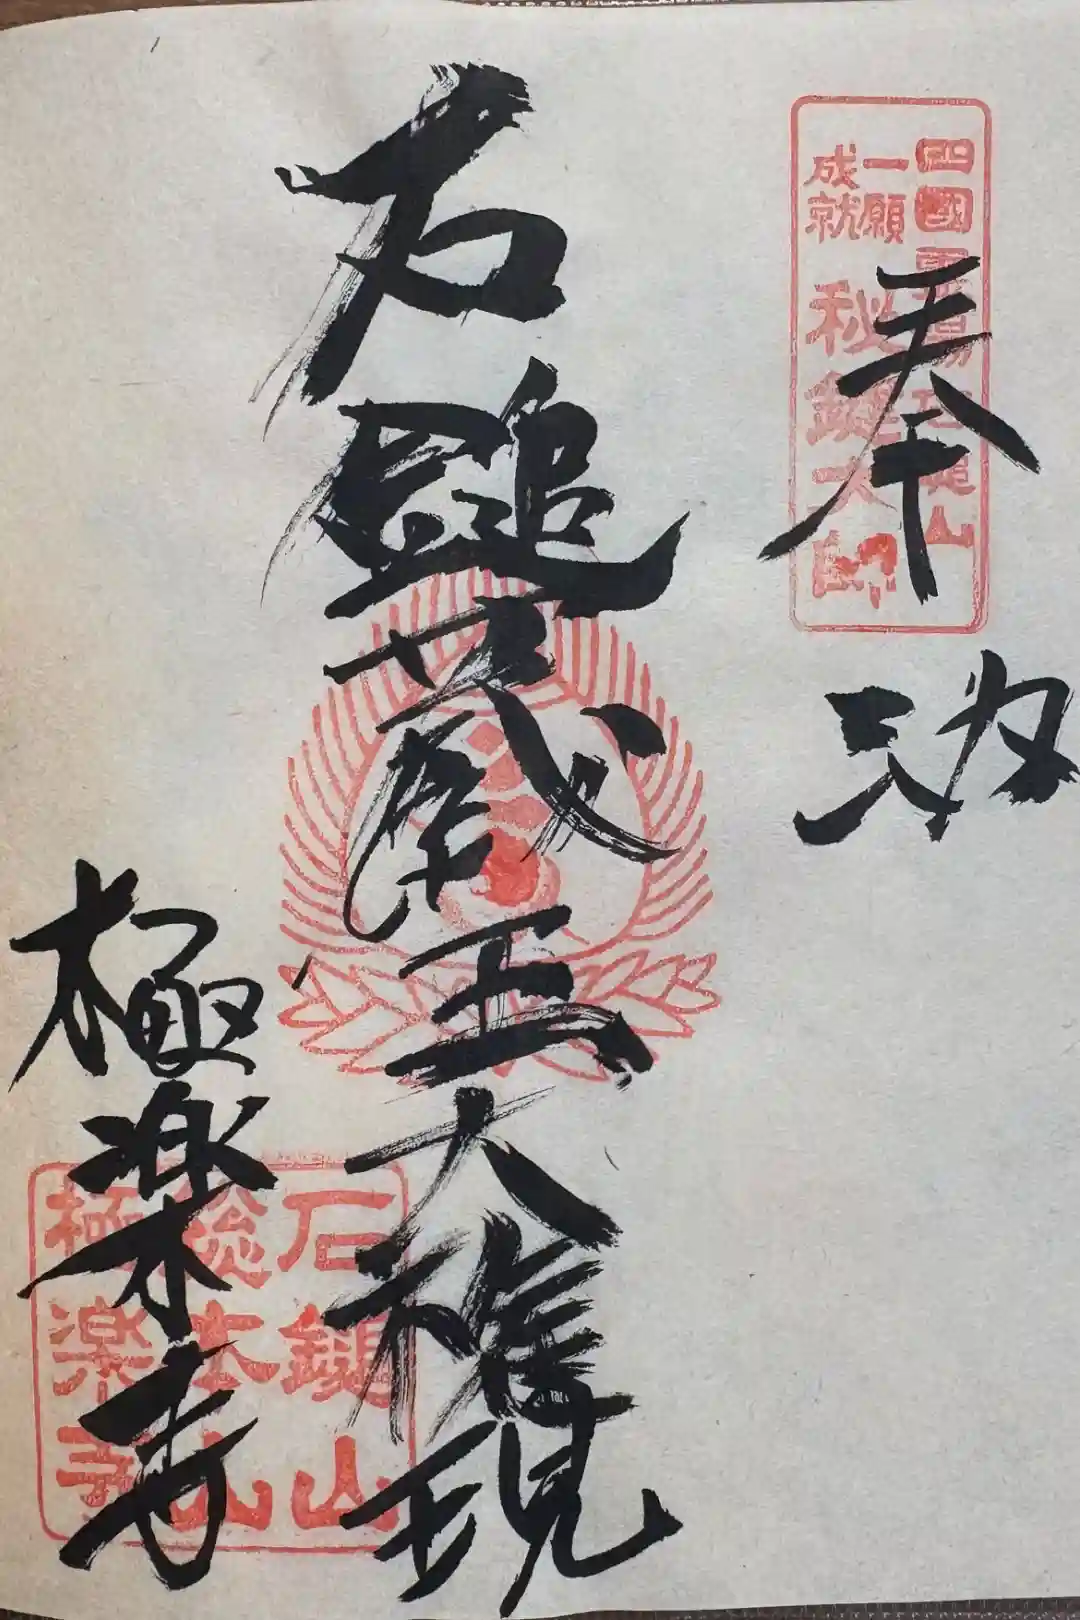 四國霊場石鎚山
一願
成就
秘鍵大師
奉納
石鎚蔵王大権現
極楽寺
石鎚山
総本山
極楽寺